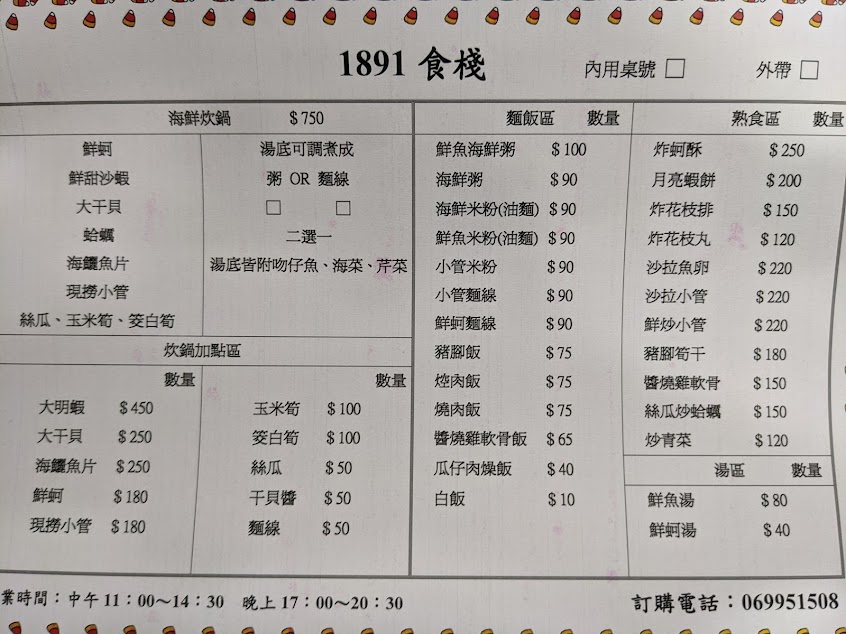 1891 食棧
內用桌號 □ 外帶 □
海鮮炊鍋 $750
鮮蚵
鮮甜沙蝦
大干貝
蛤蠣
海鱺魚片
現撈小管
絲瓜、玉米筍、筊白筍
湯底可調煮成
粥 OR 麵線
□ □
二選一
湯底皆附吻仔魚、海菜、芹菜
炊鍋加點區
數量
大明蝦 $450
大干貝 $250
海鱺魚片 $250
鮮蚵 $180
現撈小管 $180
數量
玉米筍 $100
筊白筍 $100
絲瓜 $50
干貝醬 $50
麵線 $50
麵飯區 數量
鮮魚海鮮粥 $100
海鮮粥 $90
海鮮米粉(油麵) $90
鮮魚米粉(油麵) $90
小管米粉 $90
小管麵線 $90
鮮蚵麵線 $90
豬腳飯 $75
焢肉飯 $75
燒肉飯 $75
醬燒雞軟骨飯 $65
瓜仔肉燥飯 $40
白飯 $10
熟食區 數量
炸蚵酥 $250
月亮蝦餅 $200
炸花枝排 $150
炸花枝丸 $120
沙拉魚卵 $220
沙拉小管 $220
鮮炒小管 $220
豬腳筍干 $180
醬燒雞軟骨 $150
絲瓜炒蛤蠣 $150
炒青菜 $120
湯區 數量
鮮魚湯 $80
鮮蚵湯 $40
業時間：中午 11：00～14：30 晚上 17：00～20：30
訂購電話：069951508